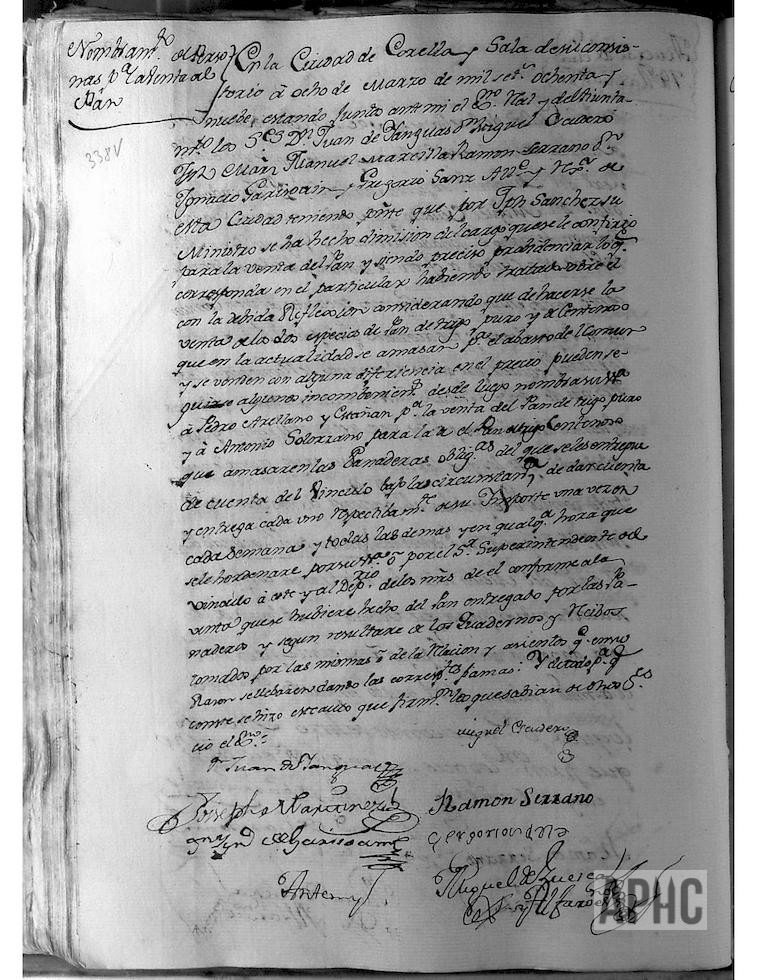 Nombram.to de Perso
nas p.a la Venta del
Pan
338V
En la Ciudad de Corella y Sala de su consis-
torio â ocho de Marzo de mil set.s ochenta y
nuebe, estando Junto ante mi el Ess.no Real y del Aiunta-
m.to los S.es D.n Juan de Yanguas D.n Miguel Escudero
Jph Mrñz Manuel Marcilla Ramon Serrano D.n
Ignacio Garisoain y Gregorio Sanz Alc.e y Rex.s de
esta Ciudad teniendo pnte que por Jph Sanchez su
Ministro se ha hecho dimision del cargo que se le confirio
para la venta del Pan y siendo preciso probidenciar lo q.e
corresponda en el particular habiendo tratado sobre el
con la debida Reflecsion considerando que de hacerse la
venta de las dos especies de Pan de trigo puro y de Centenoso
que en la actualidad se amasan p.a el abasto del Comun
y se venden con alguna diferiencia en el precio pueden se-
guirse algunos incombenient.s desde luego nombra su S.a
â Pedro Arellano y Estañan p.a la venta del Pan de trigo puro
y â Antonio Solorzano para la de el Pan de trigo Centenoso
que amasaren las Panaderas oblig.as del que se les entregue
de cuenta del Vinculo bajo las circunstan.s de dar cuenta
y entrega cada uno respectibam.te de su Importe una vez en
cada semana y todas las demas y en qualq.a hora que
se le hordenare por su S.a ô por el S.r Superintendente del
vinculo â este y al Dep.rio de los mrs de el conforme a la
venta que se hubiere hecho del Pan entregado por las Pa-
naderas y segun resultare de los Quadernos y Recibos
tomados por las mismas de la Racion y asientos q.e en su
Razon se llebaren dando las corresp.tes Y de todo p.a q.e
conste se hizo este auto que firm.n los que sabian de dhos S.es
Miguel Escudero
D.n Juan de Yanguas
Joseph Martinez
Ramon Serrano
Ygnacio de Garisoain
Gregorio Sanz
Ante my
Miguel de Luesca
y Alfaro
APHC